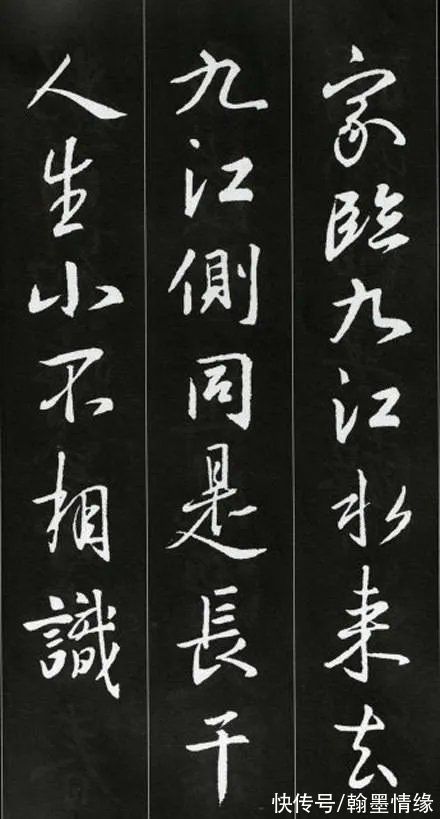 家臨九江水来去
九江側同是長干
人生小不相識
快传号/翰墨情缘